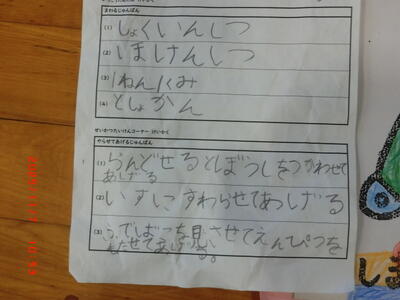 まわるじゅんばん
(1) しょくいんしつ
(2) いまけんしつ
(3) 1ねん1くみ
(4) としょかん
せいかつたいけんコーナー
やらせてあげるじゅんばん
(1) らんどせるとぼうしをつかわせて
あしげる
(2) いすにこすわらせてあつしげる
(3) ふでばつを見させてえんぴつを
しま